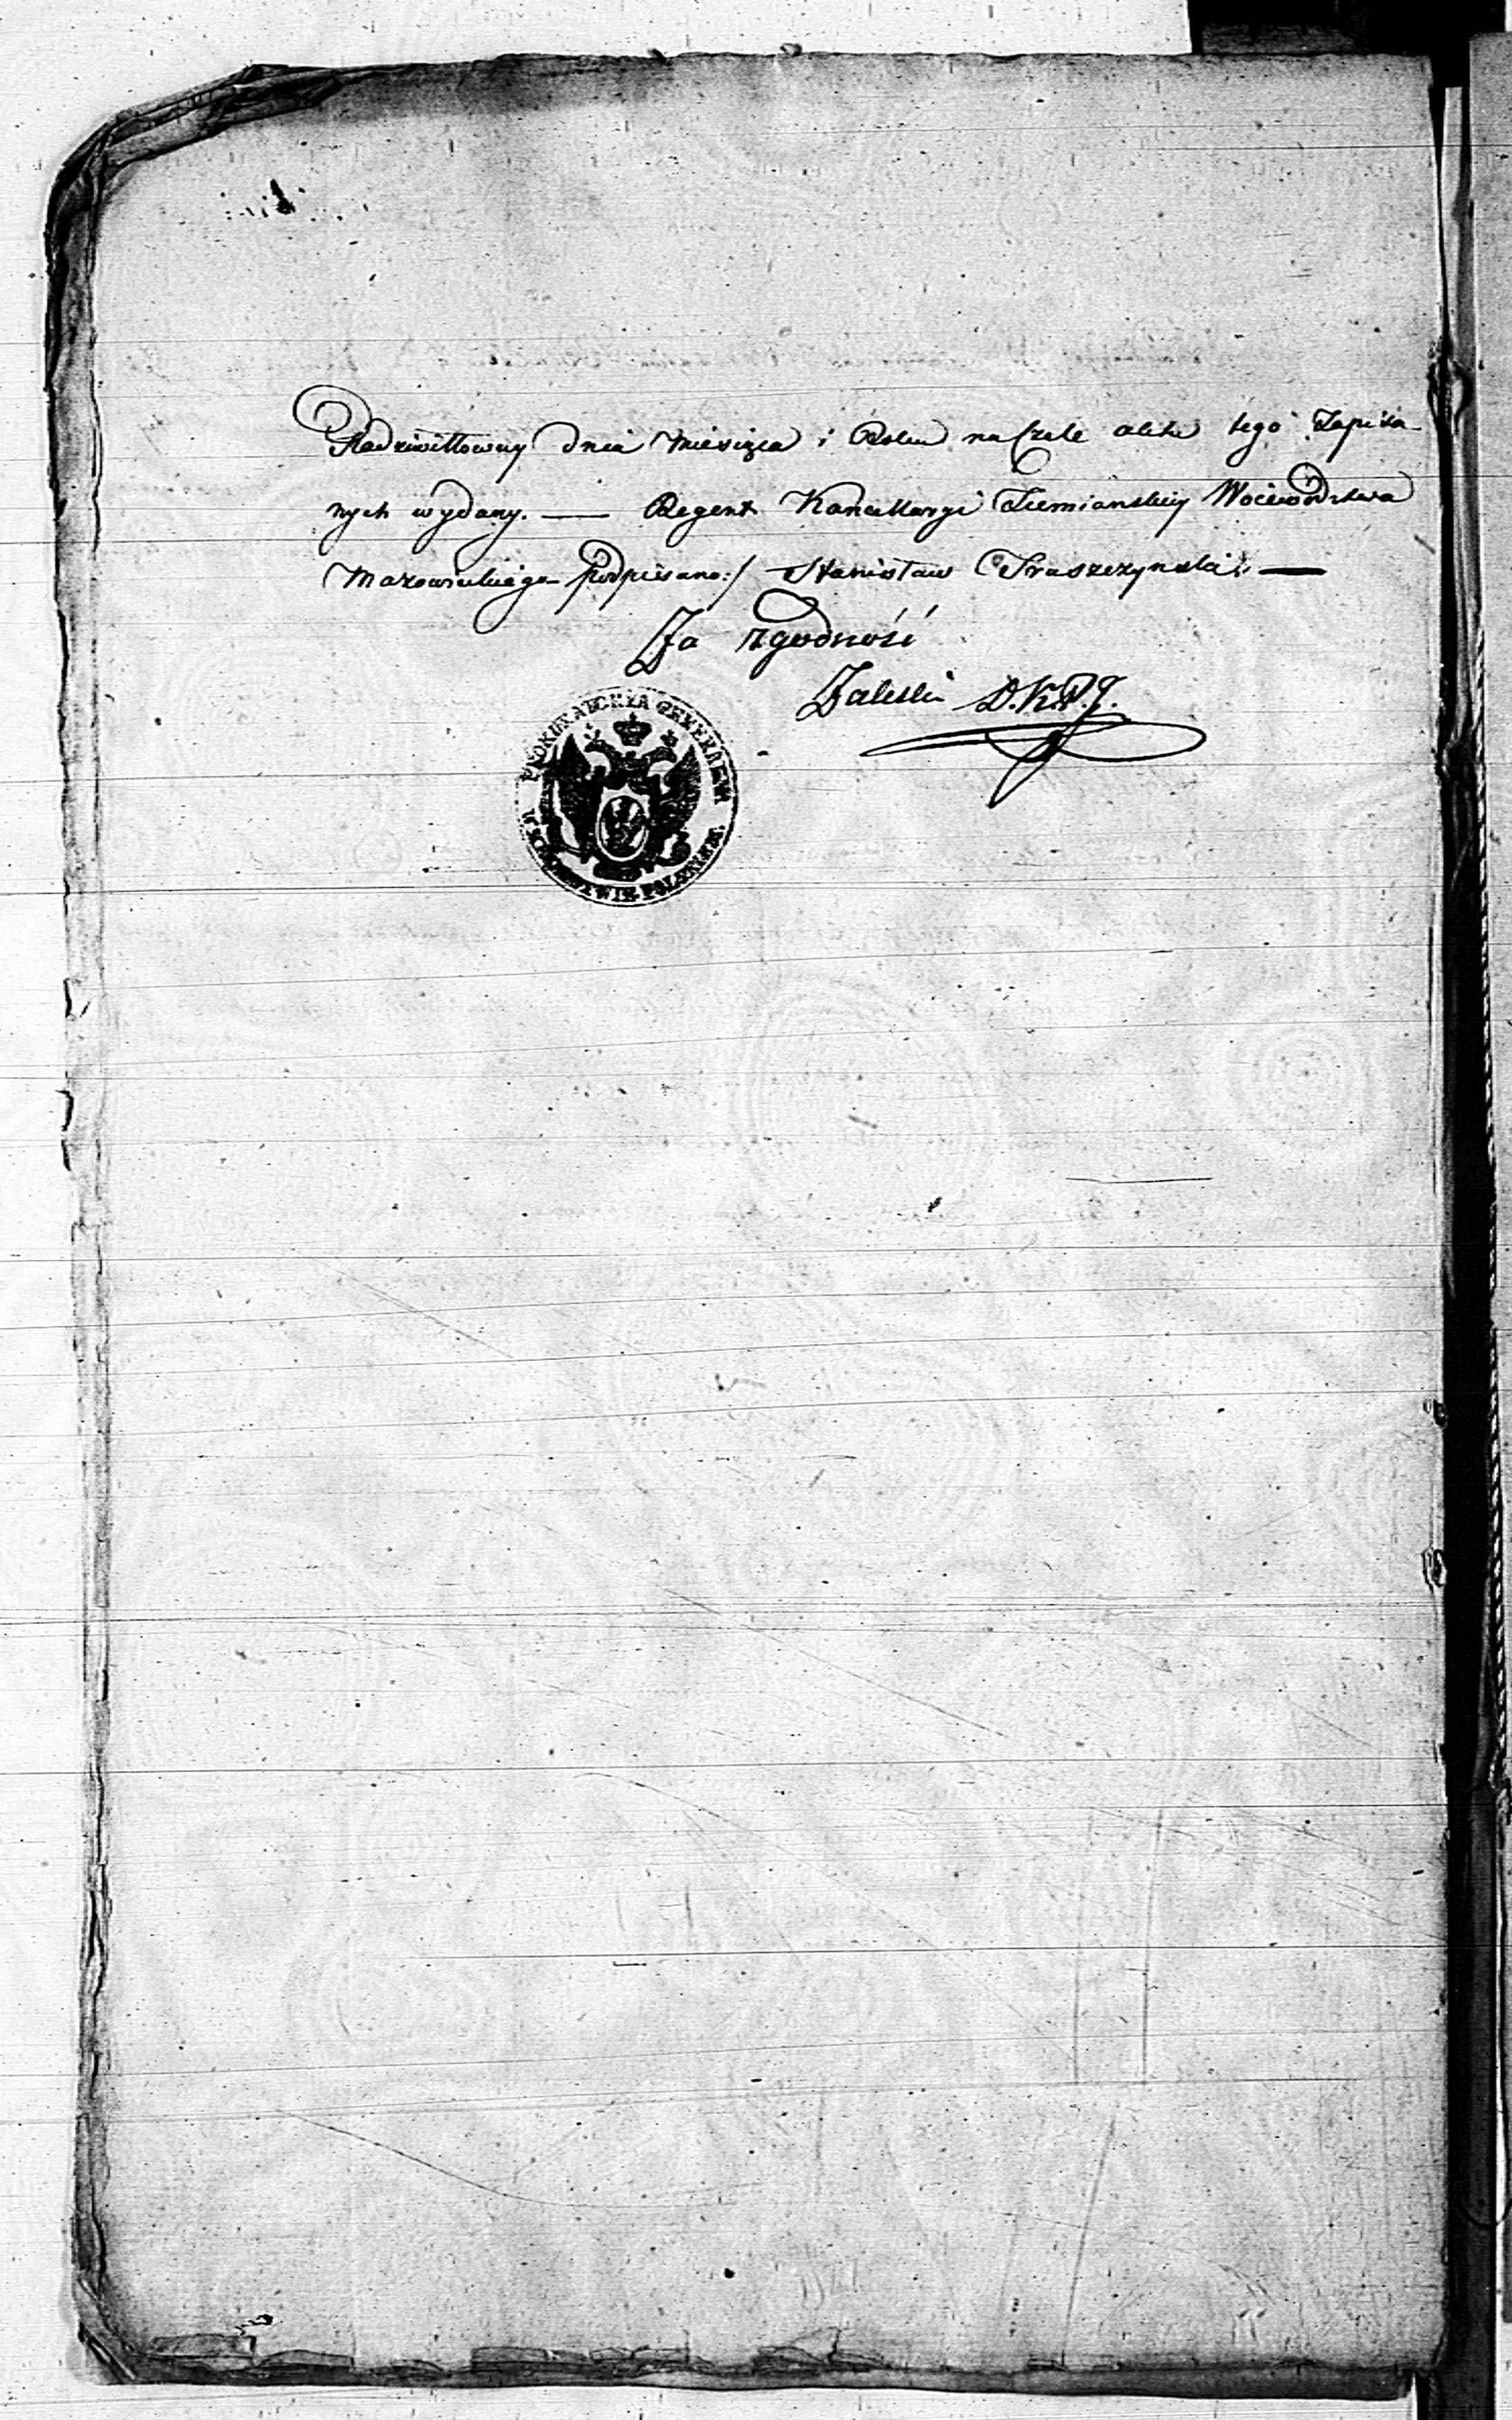 Radziwiłłowny dnia Miesiąca i Roku na Czele aktu tego Zapisa-
nych wydany. — Regent Kancellaryi Ziemiańskiey Woiewództwa
Mazowieckiego podpisano:/ Stanisław Truszczynski. —
Za zgodność
Zaleski D.K.P.J.
PROKURATORYA GENERALNA
W KROLESTWIE POLSKIEM